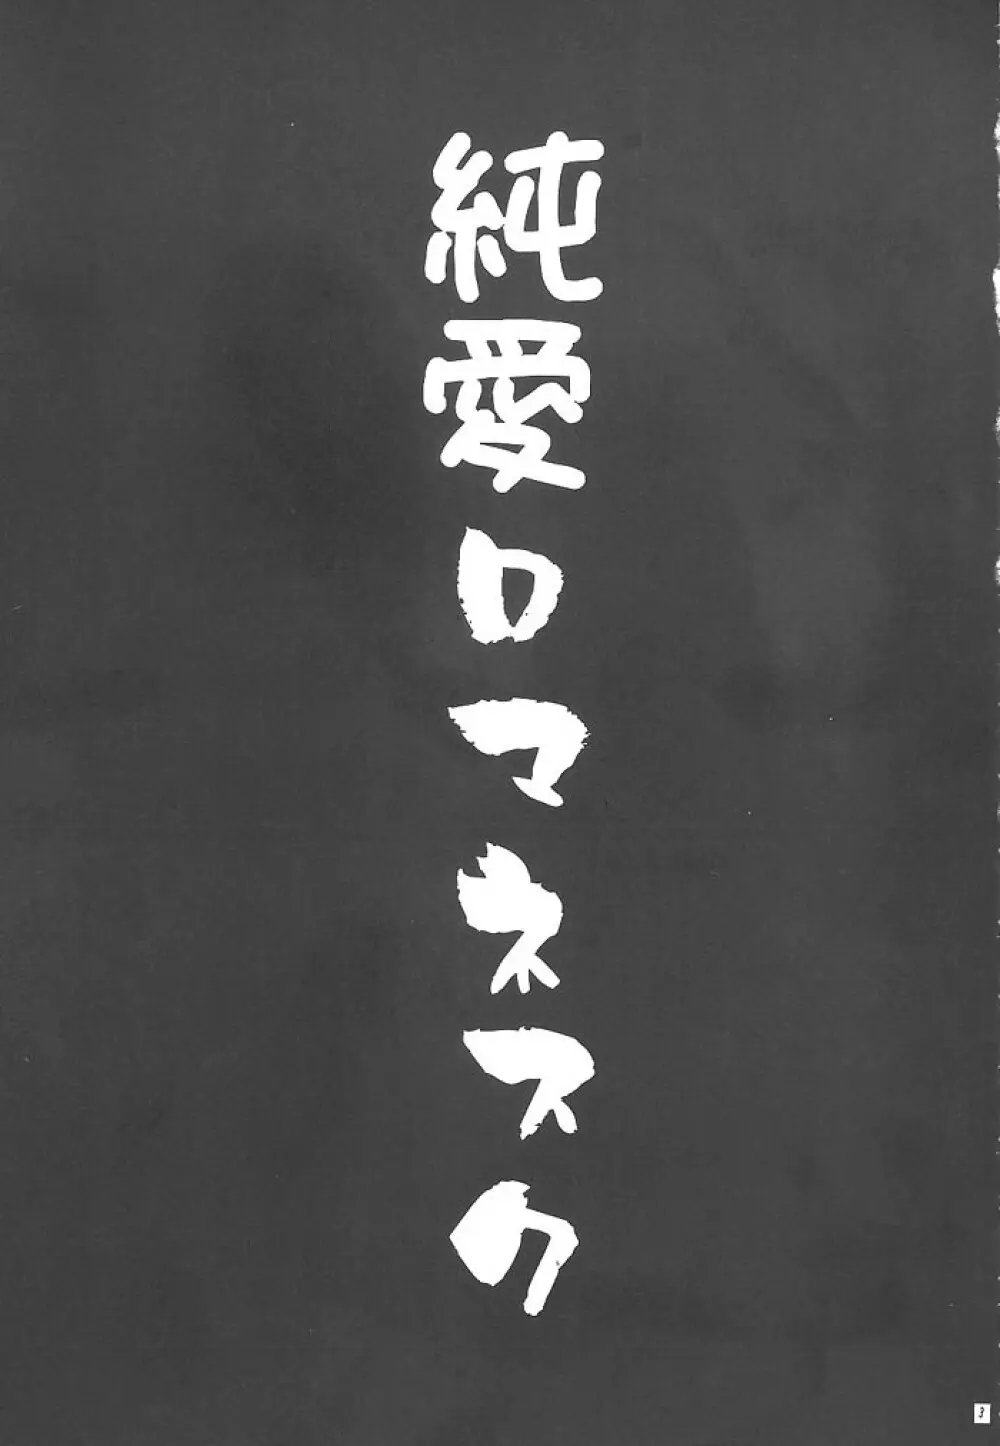 純愛ロマネスの
3